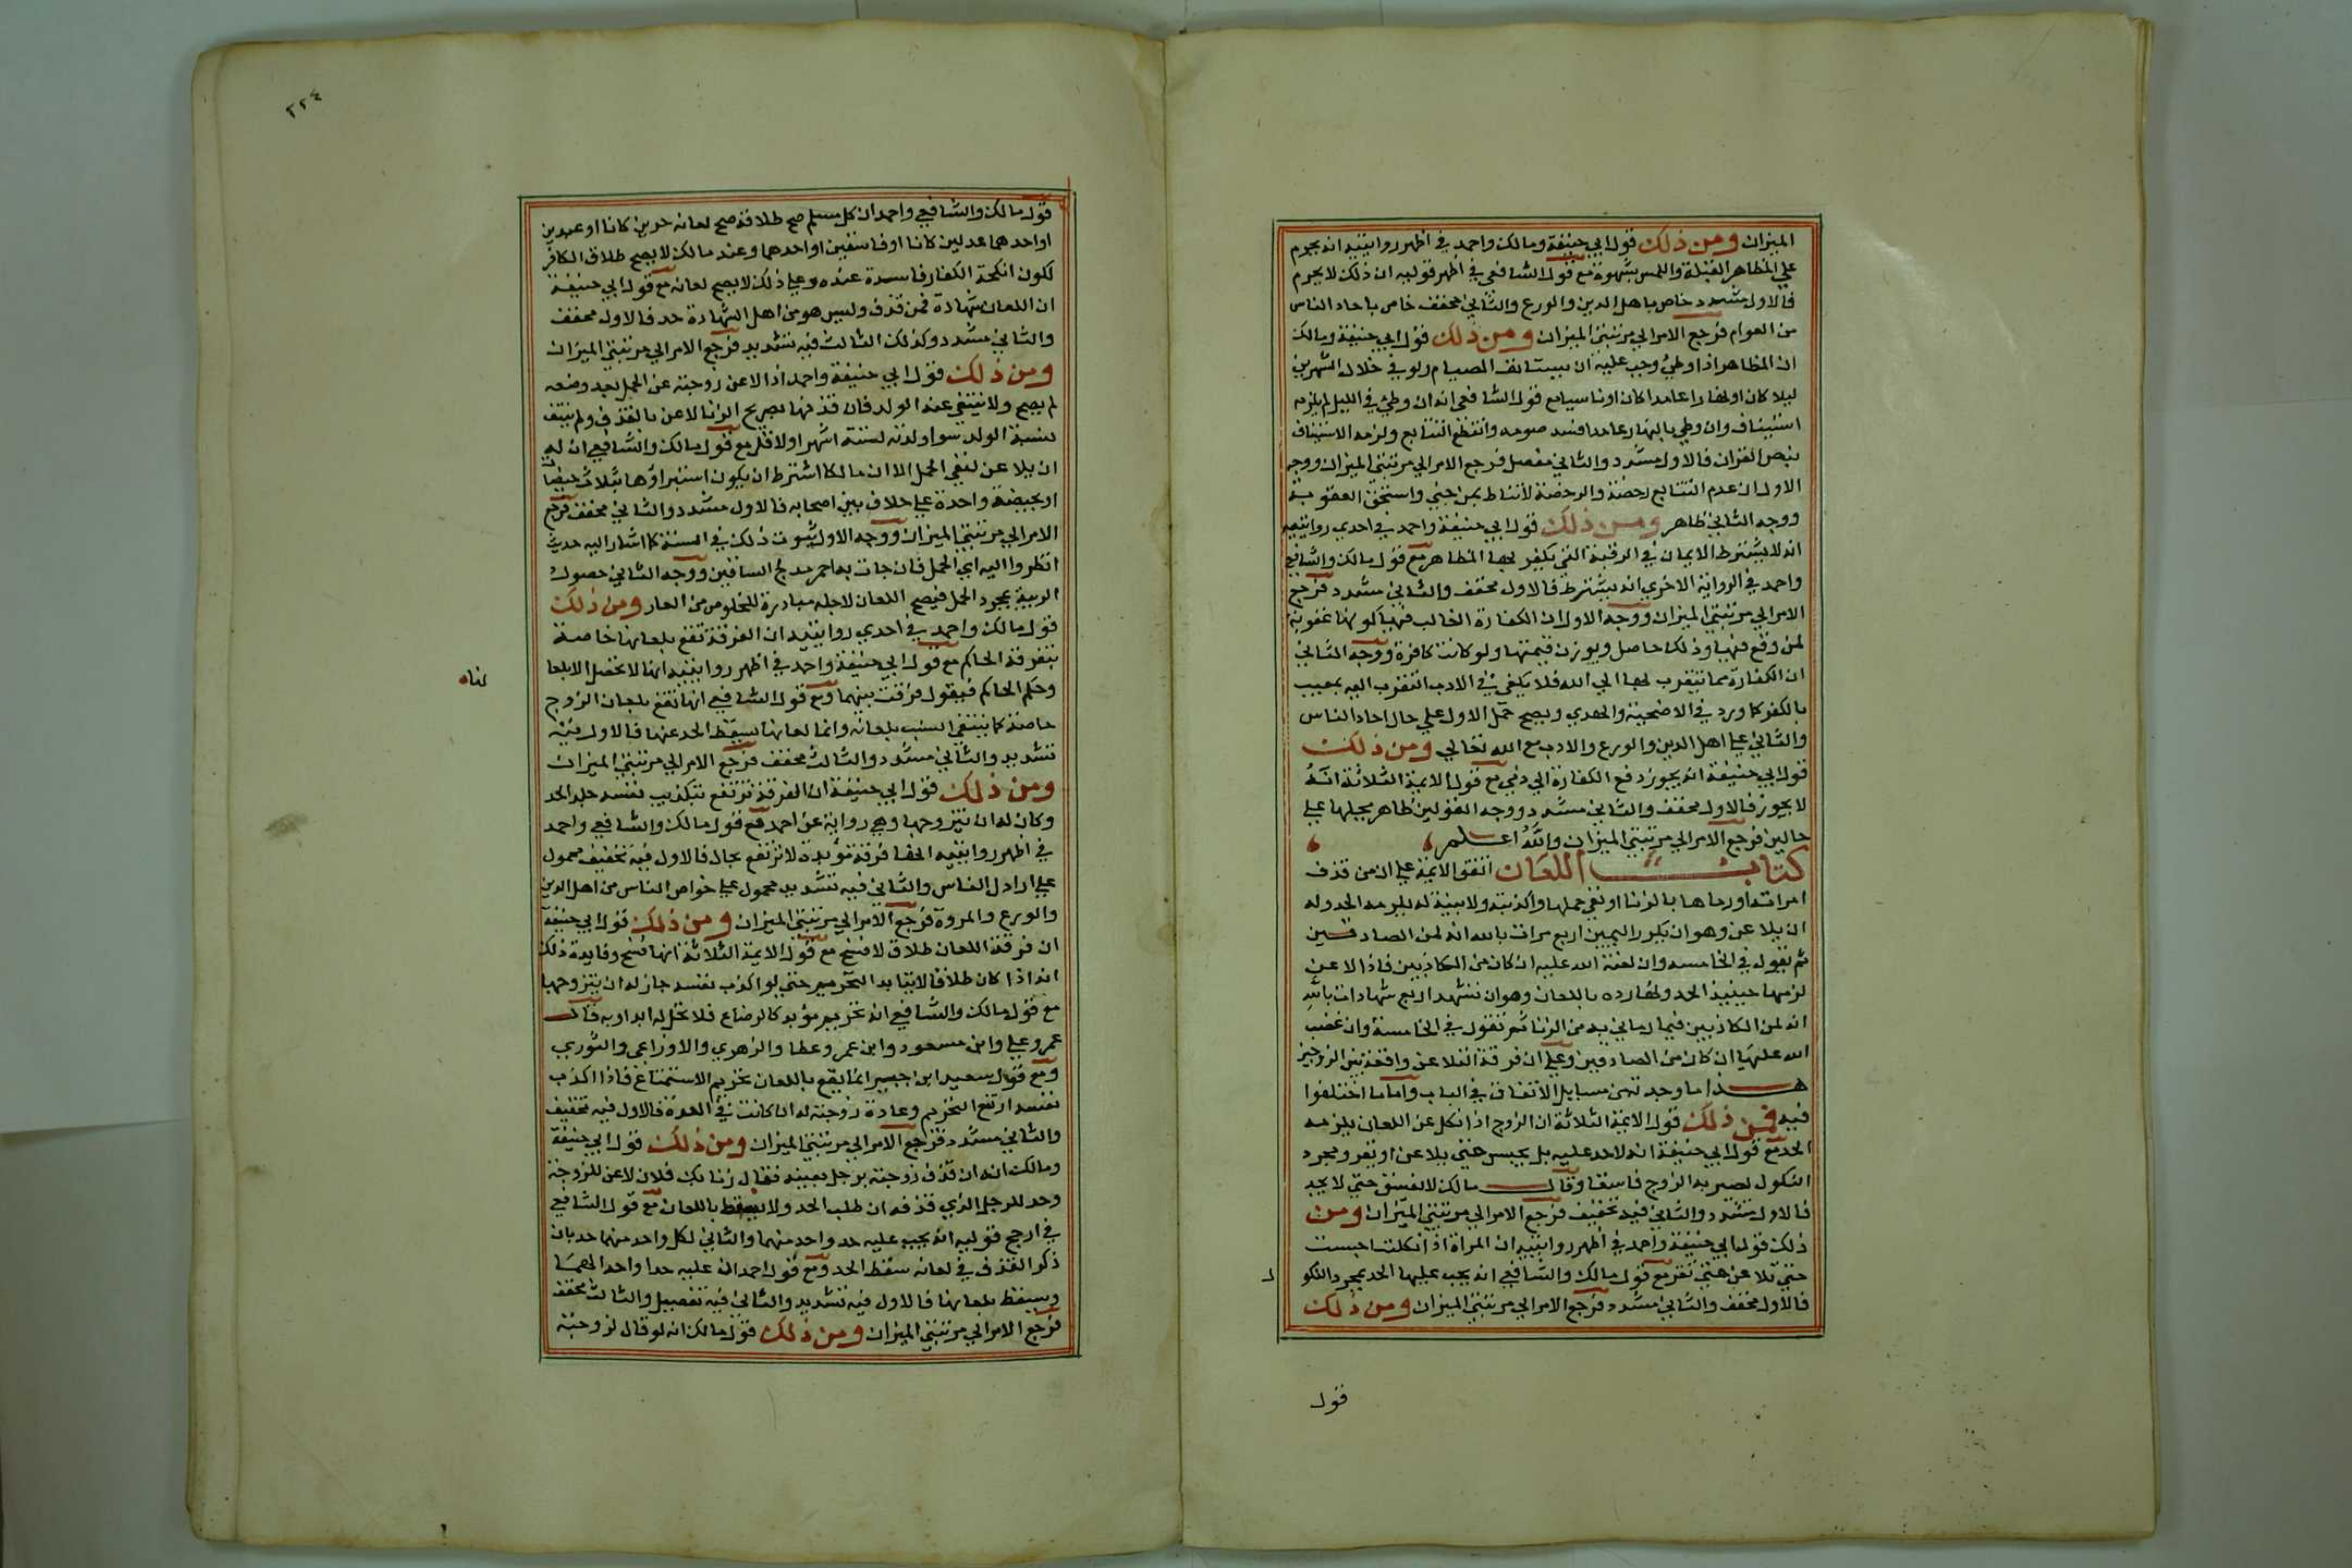 الميزان ومن ذلك قول ابي حنيفة ومالك واحمد في اظهر روايتيه انه يحرم
علي المظاهر القبلة واللمس بشهوة مع قول الشافعي في اظهر قوليه ان ذلك لا يحرم
فالاول مشدد خاص باهل الدين والورع والثاني مخفف خاص باحاد الناس
من العوام فرجع الامر الي مرتبتي الميزان ومن ذلك قول ابي حنيفة ومالك
ان المظاهر اذا وطئ وجب عليه ان يستانف الصيام ولو في خلال الشهرين
ليلا كان او نهارا عامدا كان او ناسيا مع قول الشافعي انه ان وطئ في الليل لم يلزمه
استيناف وان وطي بالنهار عامدا فسد صومه وانقطع التتابع ولزمه الاستيناف
بنص القران فالاول مشدد والثاني مفصل فرجع الامر الي مرتبتي الميزان ووجه
الاول ان عدم التتابع رخصة والرخصة لا تناط بمن جني واستحق العقوبة
ووجه الثاني ظاهر ومن ذلك قول ابي حنيفة واحمد في احدي روايتيه
انه لا يشترط الايمان في الرقبة التي يكفر بها المظاهر مع قول مالك والشافعي
واحمد في الرواية الاخري انه يشترط فالاول مخفف والثاني مشدد فرجع
الامر الي مرتبتي الميزان ووجه الاول ان الكفارة الغالب فيها كونها عقوبة
لمن وقع فيها وذلك حاصل بوزن قيمتها ولو كانت كافرة ووجه الثاني
ان الكفارة مما يتقرب بها الي الله فلا يكفي في الادب التقرب اليه بمعيب
بالكفر كما ورد في الاضحية والهدي ويصح حمل الاول علي حال احاد الناس
والثاني علي اهل الدين والورع والادب مع الله تعالي ومن ذلك
قول ابي حنيفة انه يجوز دفع الكفارة الي ذمي مع قول الايمة الثلاثة انه
لا يجوز فالاول مخفف والثاني مشدد ووجه القولين ظاهر بحملها علي
حالين فرجع الامر الي مرتبتي الميزان والله اعلم
كتاب اللعان اتفق الايمة علي ان من قذف
امراته او رماها بالزنا او نفي حملها واكذبته ولا بينة له يلزمه الحد وله
ان يلاعن وهو ان يكرر اليمين اربع مرات بالله انه لمن الصادقين
ثم يقول في الخامسة وان لعنة الله عليه ان كان من الكاذبين فاذا لاعن
لزمها حينيذ الحد ولها رده باللعان وهو ان تشهد اربع شهادات بالله
انه لمن الكاذبين فيما رماني به من الزنا ثم تقول في الخامسة وان غضب
الله عليها ان كان من الصادقين وعلي ان فرقة التلاعن واقعة بين الزوجين
هذا ما وجدته من مسايل الاتفاق في الباب واما ما اختلفوا
فيه فمن ذلك قول الايمة الثلاثة ان الزوج اذا نكل عن اللعان يلزمه
الحد مع قول ابي حنيفة انه لا حد عليه بل يحبس حتي يلاعن او يقر وبمجرد
النكول يصير به الزوج فاسقا وقال مالك لا يفسق حتي لا يحد
فالاول مشدد والثاني فيه تخفيف فرجع الامر الي مرتبتي الميزان ومن
ذلك قول ابي حنيفة واحمد في اظهر روايتيه ان المراة اذا نكلت احبست
حتي تلاعن حتي تقر مع قول مالك والشافعي انه يجب عليها الحد بمجرد النكو
ل
فالاول مخفف والثاني مشدد فرجع الامر الي مرتبتي الميزان ومن ذلك
قول
٢٢٤
قول مالك والشافعي واحمد ان كل مسلم صح طلاقه صح لعانه حرين كانا او عبدين
او احدهما عدلين كانا او فاسقين او احدهما وعند مالك لا يصح طلاق الكافر
لكون انكحة الكفار فاسدة عنده وعلي ذلك لا يصح لعانه مع قول ابي حنيفة
ان اللعان شهادة فمن قذف وليس هو من اهل الشهادة حد فالاول مخفف
والثاني مشدد وكذلك الثالث فيه تشديد فرجع الامر الي مرتبتي الميزان
ومن ذلك قول ابي حنيفة واحمد اذا لاعن زوجته عن الحمل بعد وضعه
لم يصح ولا ينتفي عنه الولد فان قذفها بصريح الزنا لاعن بالقذف ولم ينتف
نسبة الولد سوا ولدته لستة اشهر اولا قل مع قول مالك والشافعي ان له
ان يلاعن لنفي الحمل الا ان مالكا اشترط ان يكون استبراؤها بثلاث حيضات
او بحيضة واحدة علي خلاف بين اصحابه فالاول مشدد والثاني مخفف فرجع
الامر الي مرتبتي الميزان ووجه الاول ثبوت ذلك في السنة كما اشار اليه حديث
انظروا اليه اي الحمل فان جات به احمر مدلج الساقين ووجه الثاني حصول
الريبة بمجرد الحمل فيصح اللعان لاجله مبادرة للخلوص من العار ومن ذلك
قول مالك واحمد في احدي روايتيه ان الفرقة تقع بلعانها خاصة
بتفرقة الحاكم مع قول ابي حنيفة واحمد في اظهر روايتيه انها لا تحصل الا بلعا
نهما
وحكم الحاكم فيقول فرقت بينهما ومع قول الشافعي انها تقع بلعان الزوج
خاصة كما ينتفي النسب بلعانه وانما لعانها يسقط الحد عنها فالاول فيه
تشديد والثاني مشدد والثالث مخفف فرجع الامر الي مرتبتي الميزان
ومن ذلك قول ابي حنيفة ان الفرقة ترتفع بتكذيب نفسه جلد الحد
وكان له ان يتزوجها وهي رواية عن احمد مع قول مالك والشافعي واحمد
في اظهر روايتيه انها فرقة مؤبدة لا ترتفع بحال فالاول فيه تخفيف محمول
علي اراذل الناس والثاني فيه تشديد محمول علي خواص الناس من اهل الدين
والورع والمروة فرجع الامر الي مرتبتي الميزان ومن ذلك قول ابي حنيفة
ان فرقة اللعان طلاق لا فسخ مع قول الايمة الثلاثة انها فسخ وفايدة ذلك
انه اذا كان طلاقا لا يتابد التحريم حتي لو اكذب نفسه جاز له ان يتزوجها
مع قول مالك والشافعي انه تحريم مؤبد كالرضاع فلا تحل له ابدا وبه قال
عمر وعلي وابن مسعود وابن عمر وعطا والزهري والاوزاعي والثوري
ومع قول سعيد ابن جبير انما يقع باللعان تحريم الاستمتاع فاذا اكذب
نفسه ارتفع التحريم وعادة زوجته له ان كانت في العدة فالاول فيه تخفيف
والثاني مشدد فرجع الامر الي مرتبتي الميزان ومن ذلك قول ابي حنيفة
ومالك انه ان قذف زوجته برجل بعينه فقال زنا بك فلان لاعن للزوجة
وحد للرجل الذي قذفه ان طلب الحد ولا يسقط باللعان مع قول الشافعي
في ارجح قوليه انه يجب عليه حد واحد منهما والثاني لكل واحد منهما حد بان
ذكر القذف في لعانه سقط الحد ومع قول احمد ان عليه حدا واحدا لهما
ويسقط بلعانها فالاول فيه تشديد والثاني فيه تفصيل والثالث مخفف
فرجع الامر الي مرتبتي الميزان ومن ذلك قول مالك انه لو قال لزوجته